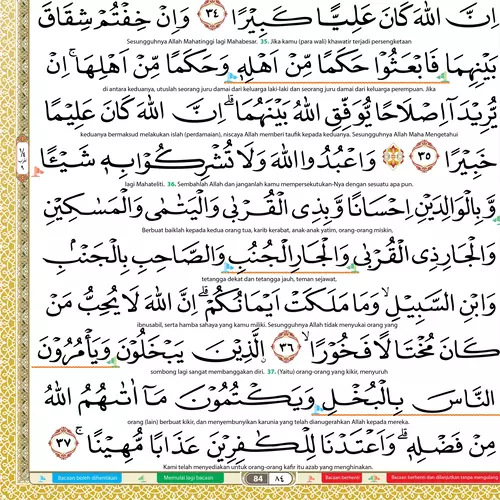 اِنَّ اللّٰهَ كَانَ عَلِيًّا كَبِيْرًا ٣٤ وَاِنْ خِفْتُمْ شِقَاقَ
Sesungguhnya Allah Mahatinggi lagi Mahabesar. 35. Jika kamu (para wali) khawatir terjadi persengketaan
بَيْنِهِمَا فَابْعَثُوْا حَكَمًا مِّنْ اَهْلِهٖ وَحَكَمًا مِّنْ اَهْلِهَا ۚ اِنْ
di antara keduanya, utuslah seorang juru damai dari keluarga laki-laki dan seorang juru damai dari keluarga perempuan. Jika
يُّرِيْدَآ اِصْلَاحًا يُّوَفِّقِ اللّٰهُ بَيْنَهُمَا ۗ اِنَّ اللّٰهَ كَانَ عَلِيْمًا
keduanya bermaksud melakukan islah (perdamaian), niscaya Allah memberi taufik kepada keduanya. Sesungguhnya Allah Maha Mengetahui
خَبِيْرًا ٣٥ وَاعْبُدُوا اللّٰهَ وَلَا تُشْرِكُوْا بِهٖ شَيْـًٔا
lagi Mahateliti. 36. Sembahlah Allah dan janganlah kamu mempersekutukan-Nya dengan sesuatu apa pun.
وَّبِالْوَالِدَيْنِ اِحْسَانًا وَّبِذِى الْقُرْبٰى وَالْيَتٰمٰى وَالْمَسٰكِيْنِ
Berbuat baiklah kepada kedua orang tua, karib kerabat, anak-anak yatim, orang-orang miskin,
وَالْجَارِ ذِى الْقُرْبٰى وَالْجَارِ الْجُنُبِ وَالصَّاحِبِ بِالْجَنْۢبِ
tetangga dekat dan tetangga jauh, teman sejawat,
وَابْنِ السَّبِيْلِۙ وَمَا مَلَكَتْ اَيْمَانُكُمْ ۗ اِنَّ اللّٰهَ لَا يُحِبُّ مَنْ
ibnusabil, serta hamba sahaya yang kamu miliki. Sesungguhnya Allah tidak menyukai orang yang
كَانَ مُخْتَالًا فَخُوْرًاۙ ٣٦ اۨلَّذِيْنَ يَبْخَلُوْنَ وَيَأْمُرُوْنَ
sombong lagi sangat membanggakan diri. 37. (Yaitu) orang-orang yang kikir, menyuruh
النَّاسَ بِالْبُخْلِ وَيَكْتُمُوْنَ مَآ اٰتٰىهُمُ اللّٰهُ
orang (lain) berbuat kikir, dan menyembunyikan karunia yang telah dianugerahkan Allah kepada mereka.
مِنْ فَضْلِهٖۗ وَاَعْتَدْنَا لِلْكٰفِرِيْنَ عَذَابًا مُّهِيْنًاۚ ٣٧
Kami telah menyediakan untuk orang-orang kafir itu azab yang menghinakan.
Bacaan boleh dihentikan
Memulai lagi bacaan
84 ٨٤
Bacaan berhenti
Bacaan berhenti dan dilanjutkan tanpa mengulang